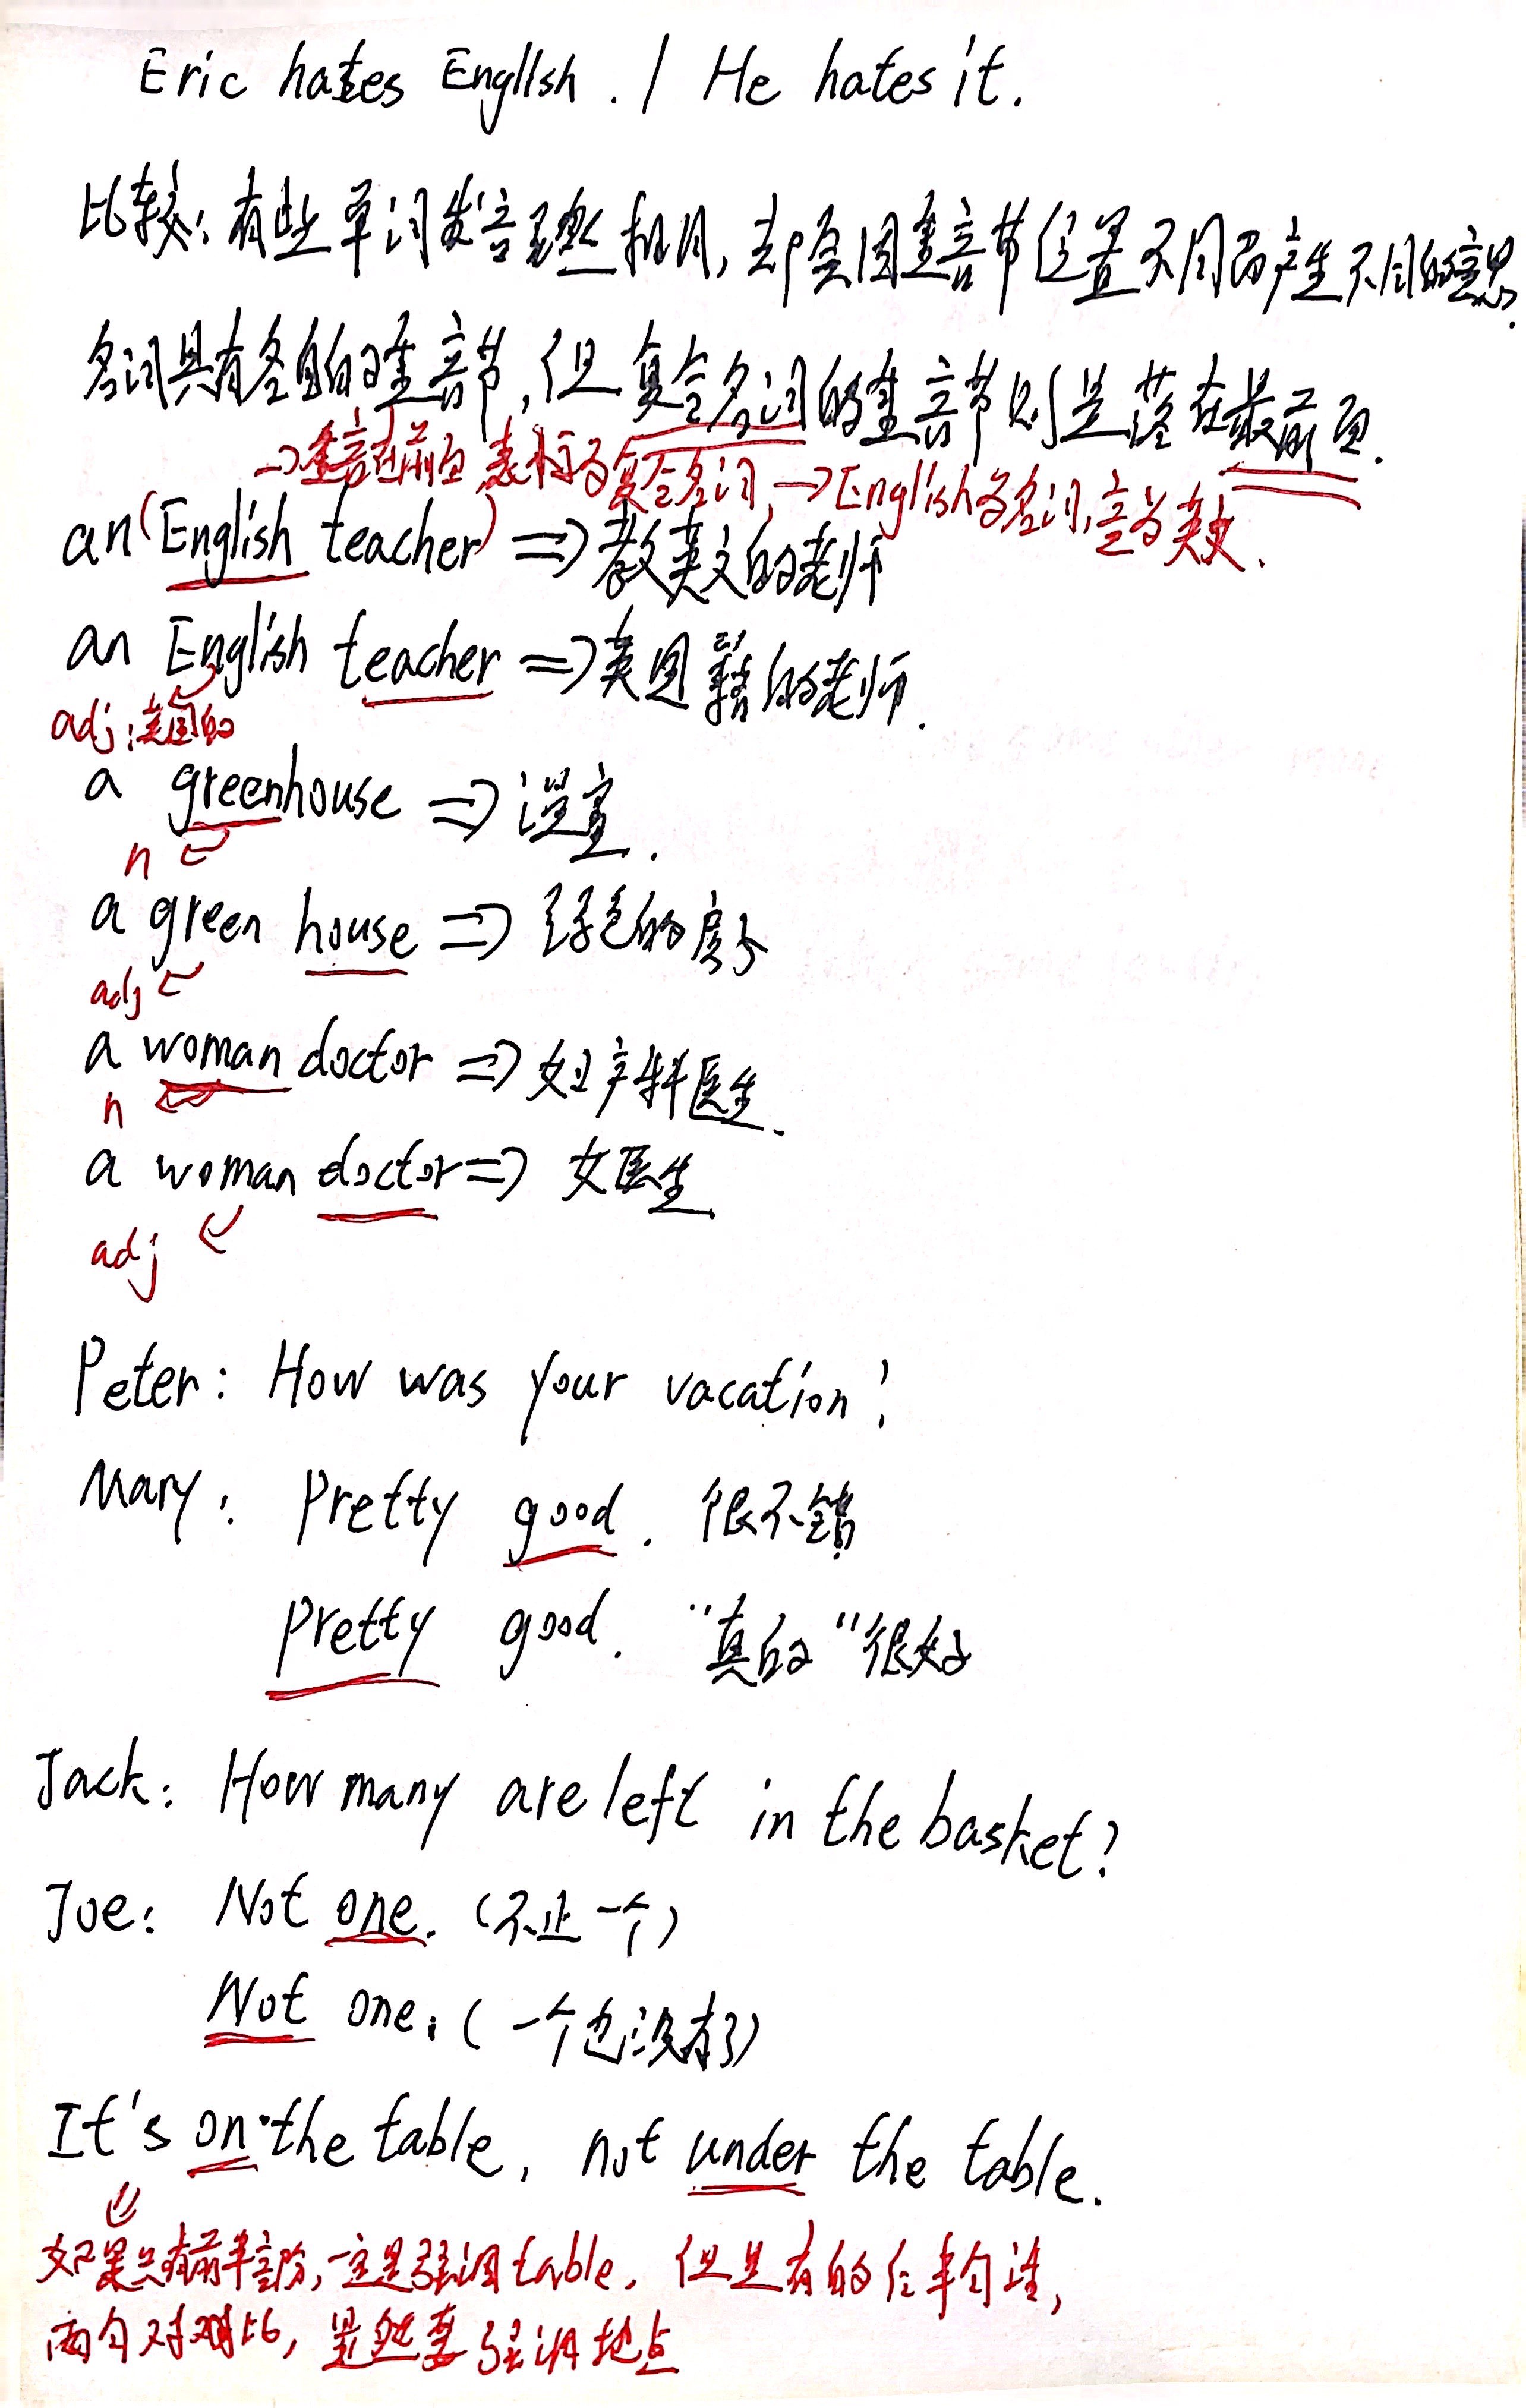 Eric hates English. / He hates it.
比较: 有些单词发音虽然相同, 却会因重音节位置不同而产生不同的意思.
名词具有各自的重音节, 但复合名词的重音节则是落在最前面.
→重音在前面表示为复合名词, →English为名词, 意为英文.
an (English teacher) => 教英文的老师
an English teacher => 英国籍的老师.
adj: 英国的
a greenhouse => 温室.
n
a green house => 绿色的房子
adj
a woman doctor => 妇产科医生.
n
a woman doctor => 女医生
adj
Peter: How was your vacation?
Mary: Pretty good. 很不错
Pretty good. "真的"很好
Jack: How many are left in the basket?
Joe: Not one. (不止一个)
Not one. (一个也没有了)
It's on the table, not under the table.
如果只有前半部份, 一定是强调table. 但是有的后半句话,
两句对比, 显然要强调地点